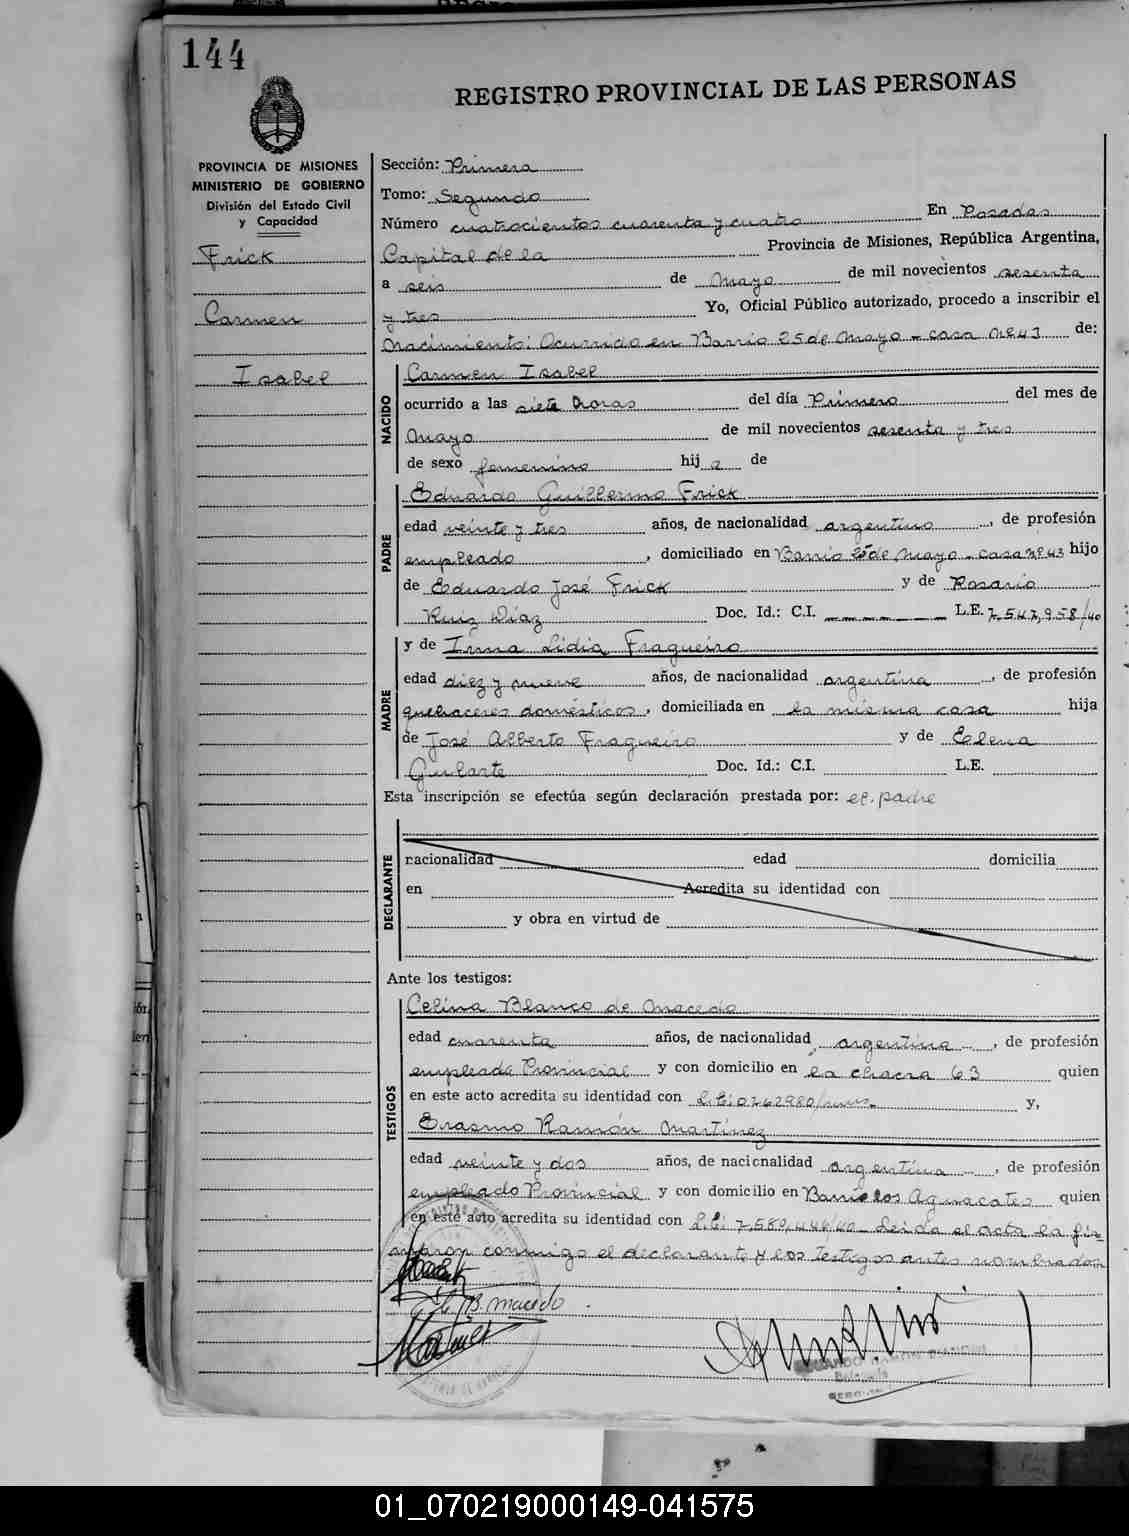 144
REGISTRO PROVINCIAL DE LAS PERSONAS
PROVINCIA DE MISIONES
MINISTERIO DE GOBIERNO
División del Estado Civil
y Capacidad
Frick
Carmen
Isabel
Sección: Primera
Tomo: Segundo
Número cuatrocientos cuarenta y cuatro En Posadas
Capital de la Provincia de Misiones, República Argentina,
a seis de Mayo de mil novecientos sesenta
y tres Yo, Oficial Público autorizado, procedo a inscribir el
Nacimiento: Ocurrido en Barrio 25 de Mayo - casa Nº 43 de:
NACIDO
Carmen Isabel
ocurrido a las siete horas del día Primero del mes de
Mayo de mil novecientos sesenta y tres
de sexo femenino hij a de
PADRE
Eduardo Guillermo Frick
edad veinte y tres años, de nacionalidad argentino, de profesión
empleado, domiciliado en Barrio 25 de Mayo - casa Nº 43 hijo
de Eduardo José Frick y de Rosario
Ruiz Díaz Doc. Id.: C.I. L.E. 7,547,958/40
MADRE
y de Irma Lidia Fragueiro
edad diez y nueve años, de nacionalidad argentina, de profesión
quehaceres domésticos, domiciliada en la misma casa hija
de José Alberto Fragueiro y de Elena
Gularte Doc. Id.: C.I. L.E.
Esta inscripción se efectúa según declaración prestada por: el padre
DECLARANTE
nacionalidad edad domicilia
en Acredita su identidad con
y obra en virtud de
Ante los testigos:
TESTIGOS
Celina Blanco de Macedo
edad cuarenta años, de nacionalidad argentina, de profesión
empleada Provincial y con domicilio en la chacra 63 quien
en este acto acredita su identidad con y,
Erasmo Ramón Martínez
edad veinte y dos años, de nacionalidad argentina, de profesión
empleado Provincial y con domicilio en Barrio los Aguacates quien
en este acto acredita su identidad con Leida el acta la fir-
maron conmigo el declarante y los testigos antes nombrados
B. Macedo
01_070219000149-041575